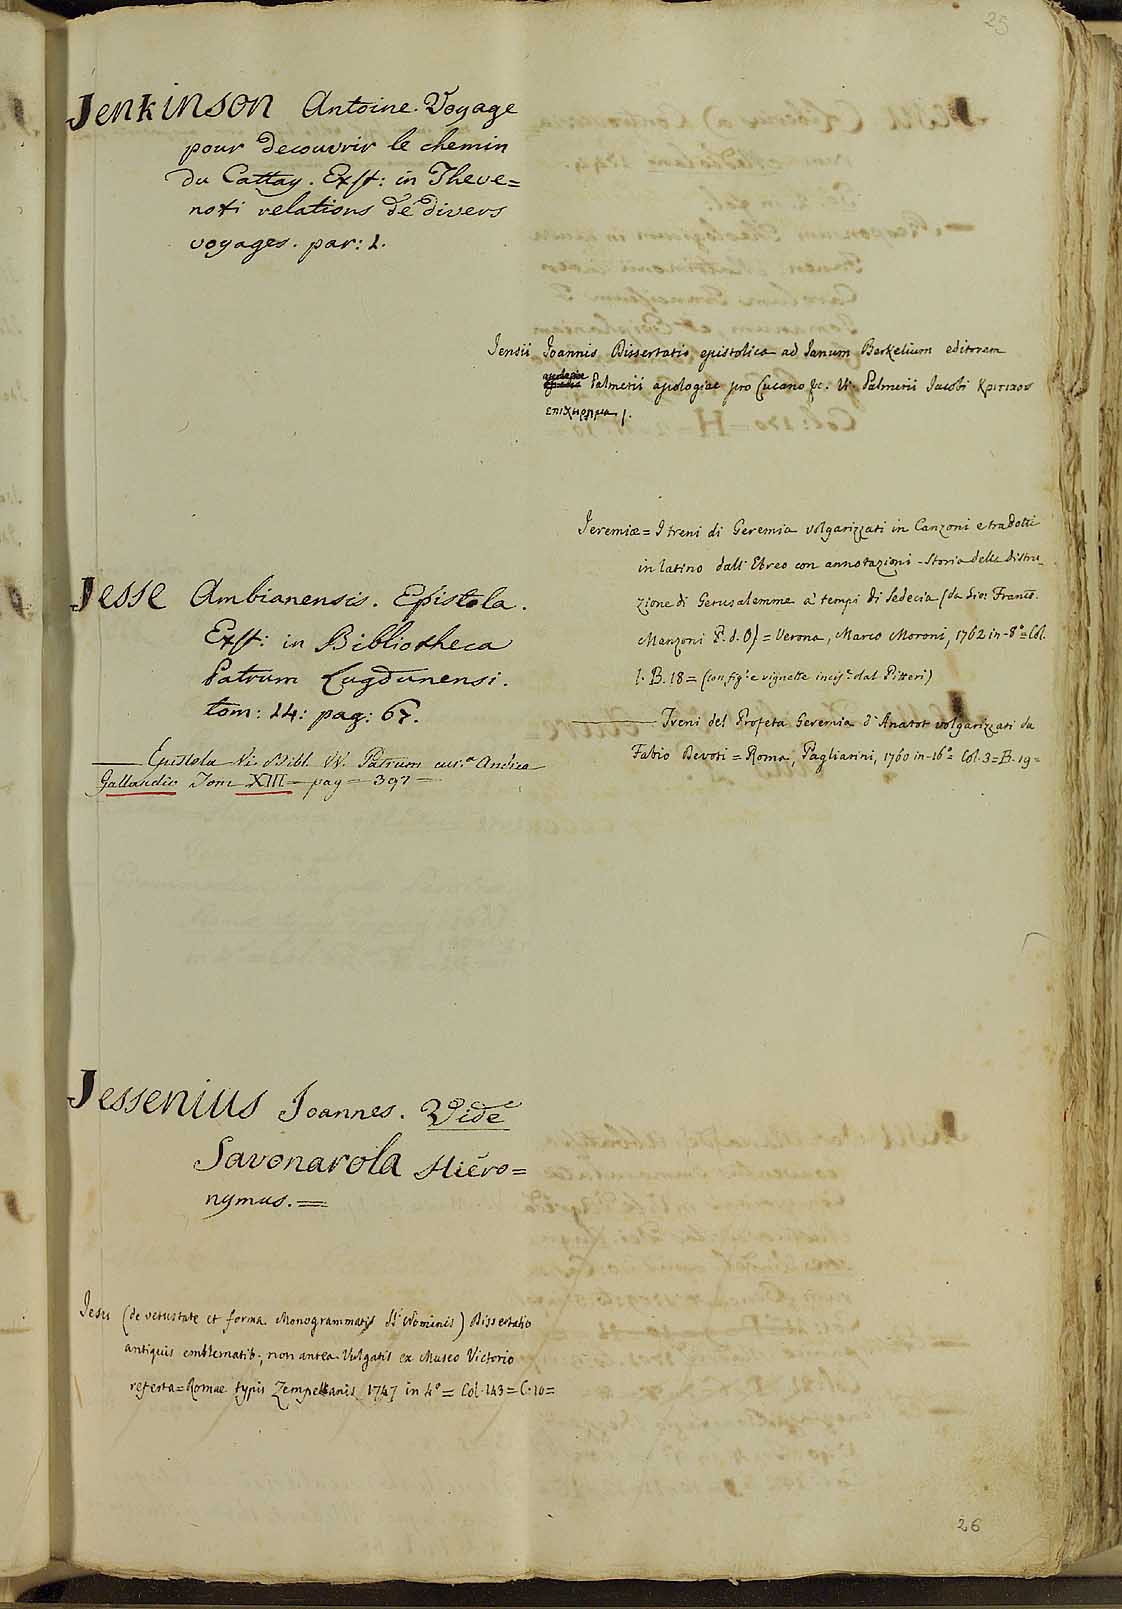 25
Jenkinson Antoine. Voyage
pour decouvrir le chemin
du Cattay. Exst: in Theve=
noti relations de divers
voyages. par: 1.
Jensii Joannis Dissertatio epistolica ad Janum Berkelium editorem
Palmerii apologiae pro Lucano &c. V. Palmerii Jacobi Κριτικον
επιχειρημα.
Jeremiæ = I treni di Geremia volgarizzati in Canzoni e tradotti
in latino dall' Ebreo con annotazioni - Storia della distru_
zione di Gerusalemme a' tempi di Sedecia (da Gio: Franco.
Manzoni P. d. O) = Verona, Marco Moroni, 1762 in-8° = Col.
1. B. 18 = (con fig. e vignette incis. dal Pitteri)
Treni del Profeta Geremia d'Anatot volgarizzati da
Fabio Devoti = Roma, Pagliarini, 1760 in-16° Col. 3 = B. 19 =
Jesse Ambianensis. Epistola.
Exst: in Bibliotheca
Patrum Lugdunensi.
tom: 14: pag: 67.
Epistola Vi. Bibl. VV. Patrum cur.a Andrea
Gallandio Tom XIII pag = 397 =
Jessenius Joannes. Vide
Savonarola Hiero=
nymus. =
Jesu (de vetustate et forma Monogrammatis SS. Nominis) Dissertatio
antiquis emblematib; non antea Vulgatis ex Museo Victorio
referta = Romae typis Zempellianis 1747 in 4° = Col. 143 = C. 10 =
26